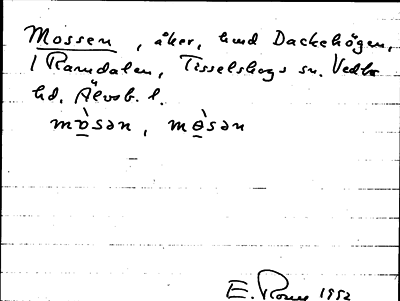 Mossen, åker, hmd Dackehögen,
1 Ramdalen, Tisselskogs sn. Vedbo
hd. Älvsb. l.
mò̱sən, mɵ̱̀sən
E. 1952